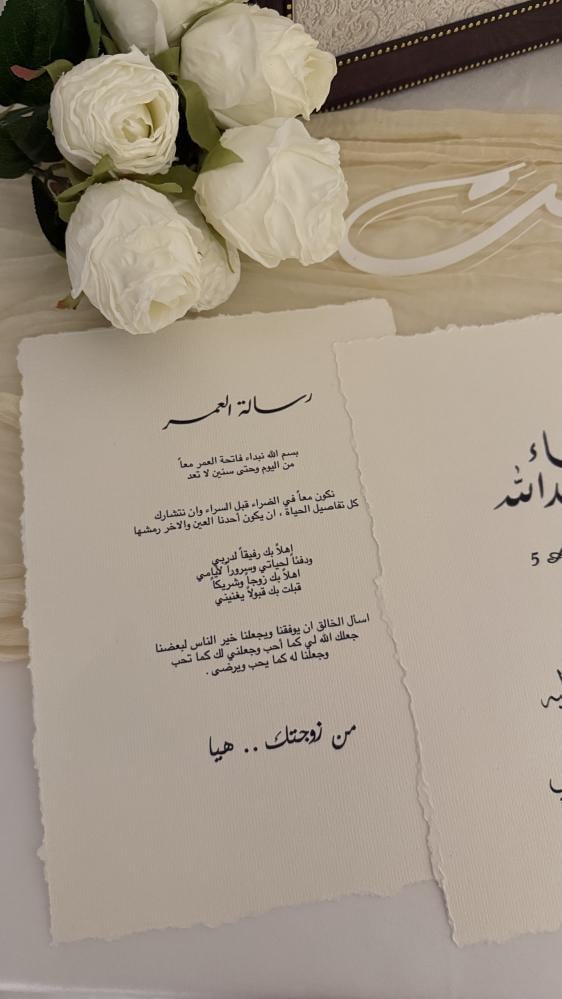 رسالة العمر
بسم الله نبداء فاتحة العمر معاً
من اليوم وحتى سنين لا تعد
نكون معاً في الضراء قبل السراء وان نتشارك
كل تفاصيل الحياة ، ان يكون أحدنا العين والاخر رمشها
إهلاً بك رفيقاً لدربي
ودفئاً لحياتي وسروراً لأيامي
اهلاً بك زوجاً وشريكاً
قبلت بك قبولاً يغنيني
اسأل الخالق ان يوفقنا ويجعلنا خير الناس لبعضنا
جعلك الله لي كما أحب وجعلني لك كما تحب
وجعلنا له كما يحب ويرضى .
من زوجتك .. هيا
5